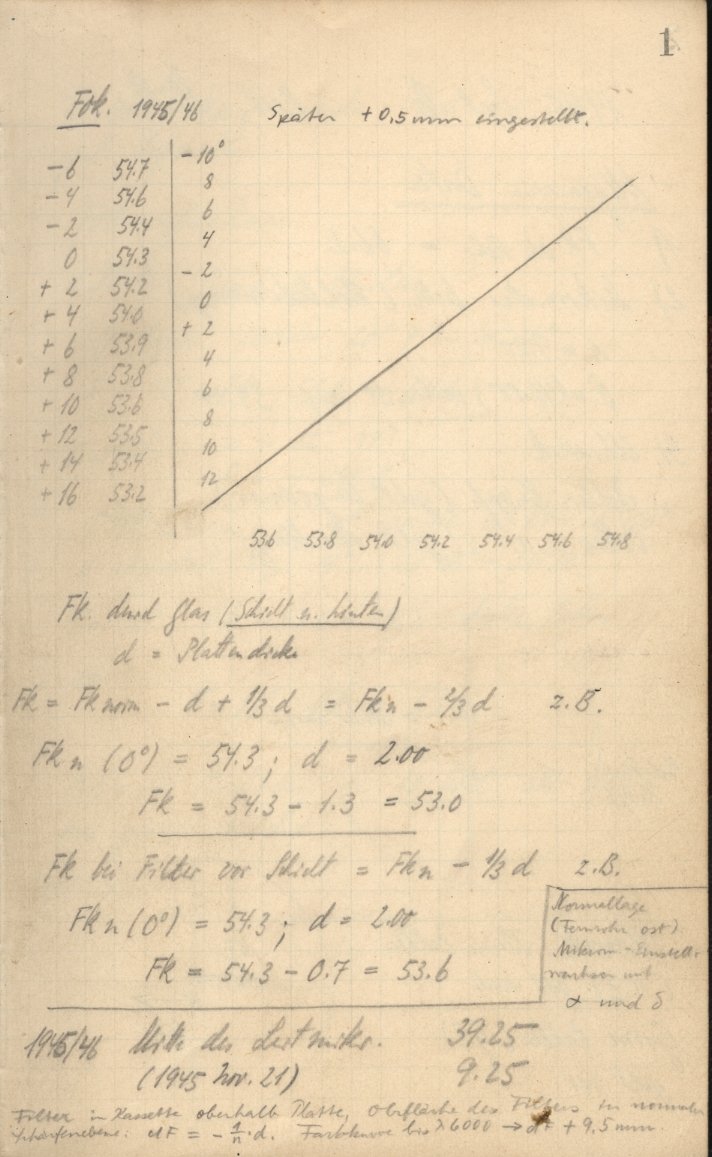 1
Fok. 1945/46 Später + 0,5 mm eingestellt.
- 6 54.7
- 4 54.6
- 2 54.4
0 54.3
+ 2 54.2
+ 4 54.0
+ 6 53.9
+ 8 53.8
+ 10 53.6
+ 12 53.5
+ 14 53.4
+ 16 53.2
- 10°
8
6
4
- 2
0
+ 2
4
6
8
10
12
53.6 53.8 54.0 54.2 54.4 54.6 54.8
Fk. durch Glas (Schicht n. hinten)
d = Plattendicke
Fk = Fk norm - d + 1/3 d = Fk n - 2/3 d z.B.
Fk n (0°) = 54.3; d = 2.00
Fk = 54.3 - 1.3 = 53.0
Fk bei Filter vor Schicht = Fk n - 1/3 d z.B.
Fk n (0°) = 54.3; d = 2.00
Fk = 54.3 - 0.7 = 53.6
Normallage
(Fernrohr ost)
Mikrom-Einstell.
wachsen mit
α und δ
1945/46 Mitte des Leitmikr. 39.25
(1945 Nov. 21) 9.25
Filter in Kassette oberhalb Platte, Oberfläche des Filters in normaler
Schärfenebene: dF = - 1/n · d. Farbkurve bis λ 6000 → dF + 9,5 mm.